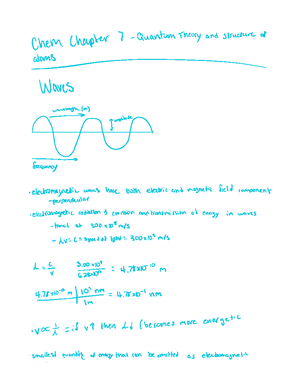 Chem Chapter 7 - Quantum Theory and structure of
atoms
Waves
wavelength (m)
amplitude
frequency
• electromagnetic waves have both electric and magnetic field component
- perpendicular
• electromagnetic radiation = emission and transmission of energy in waves
- travel at 3.00 x10⁸ m/s
- λν = c = speed of light = 3.00 x10⁸ m/s
λ = c/ν 3.00 x10⁸ = 4.78 x10⁻¹⁰ m
4.78 x10⁻¹⁰ m | 10⁹ nm / 1m = 4.78 x10⁻¹ nm
• ν ∝ 1/λ = if ν↑ then λ↓ (becomes more energetic
smallest quantity of energy that can be emitted as electromagnetic